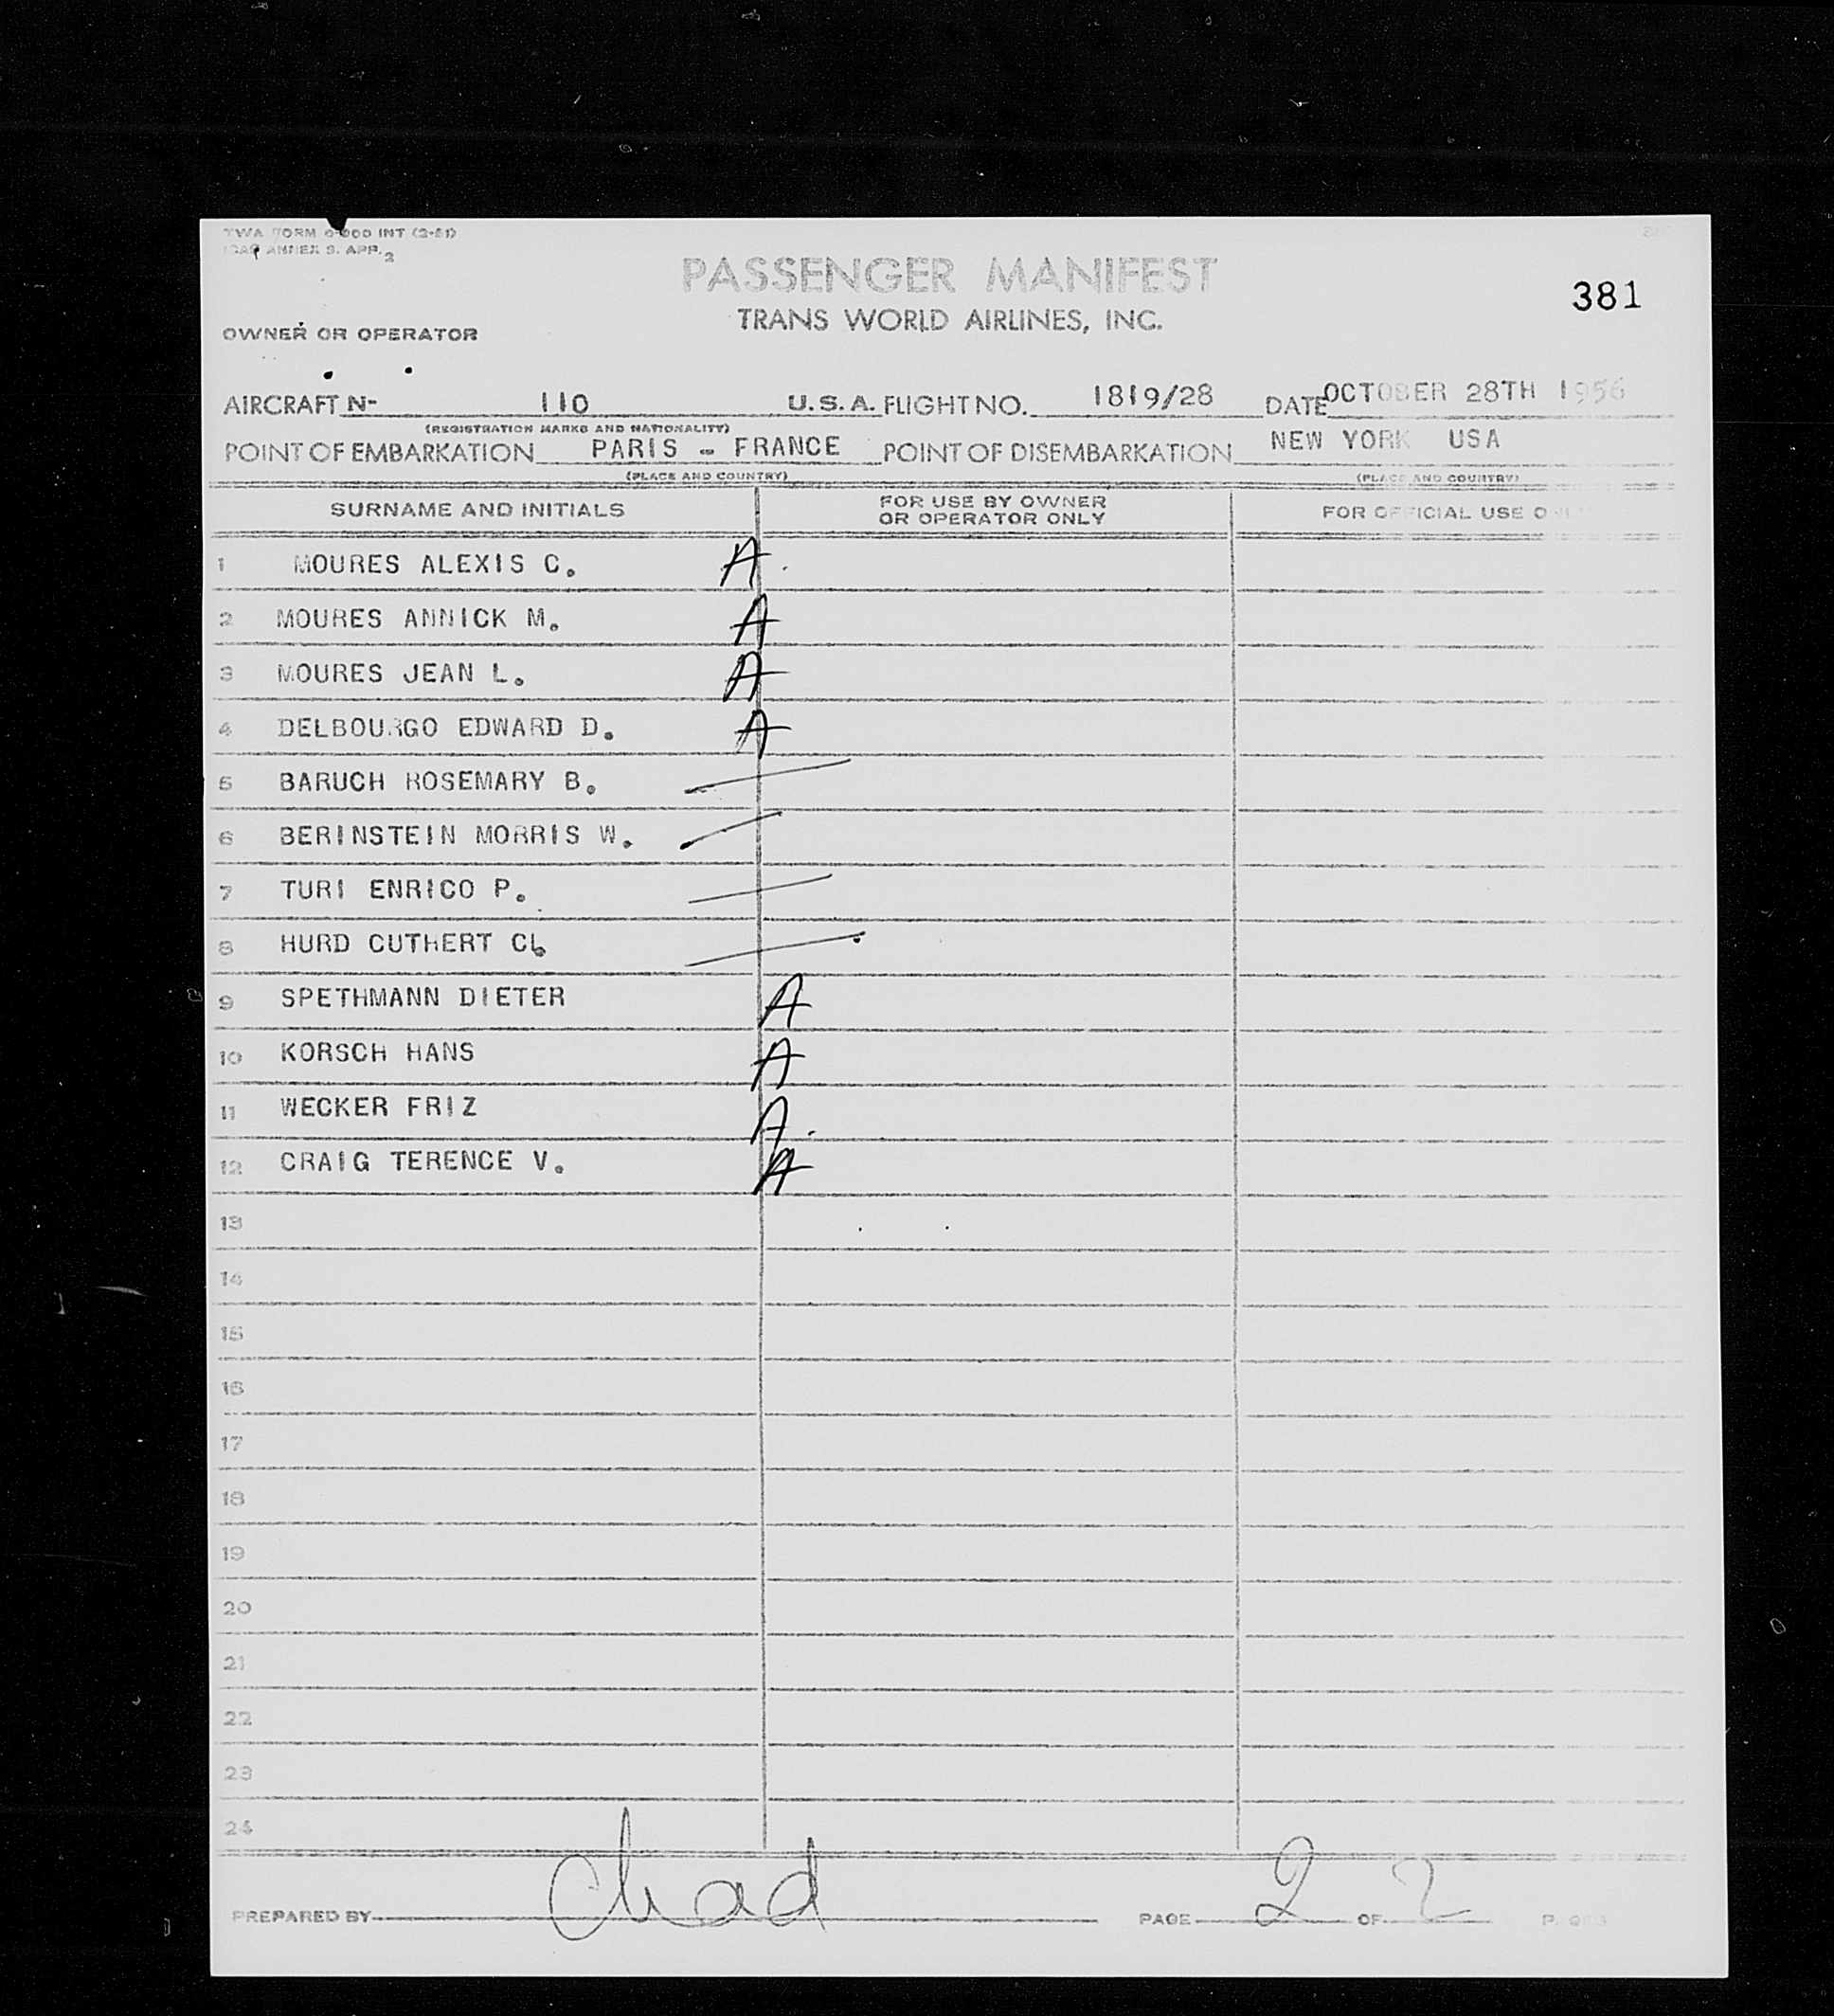 TWA FORM 0-000 INT (2-51)
ICAO ANNEX 9. APP. 2
PASSENGER MANIFEST
381
TRANS WORLD AIRLINES, INC.
OWNER OR OPERATOR
AIRCRAFT N- 110 U.S.A. FLIGHT NO. 1819/28 DATE OCTOBER 28TH 1956
(REGISTRATION MARKS AND NATIONALITY)
POINT OF EMBARKATION PARIS - FRANCE POINT OF DISEMBARKATION NEW YORK USA
(PLACE AND COUNTRY) (PLACE AND COUNTRY)
SURNAME AND INITIALS FOR USE BY OWNER OR OPERATOR ONLY FOR OFFICIAL USE ONLY
1 MOURES ALEXIS C. A
2 MOURES ANNICK M. A
3 MOURES JEAN L. A
4 DELBOURGO EDWARD D. A
5 BARUCH ROSEMARY B.
6 BERINSTEIN MORRIS W.
7 TURI ENRICO P.
8 HURD CUTHERT CL.
9 SPETHMANN DIETER A
10 KORSCH HANS A
11 WECKER FRIZ A
12 CRAIG TERENCE V. A
13
14
15
16
17
18
19
20
21
22
23
24
PREPARED BY Chad PAGE 2 OF 2